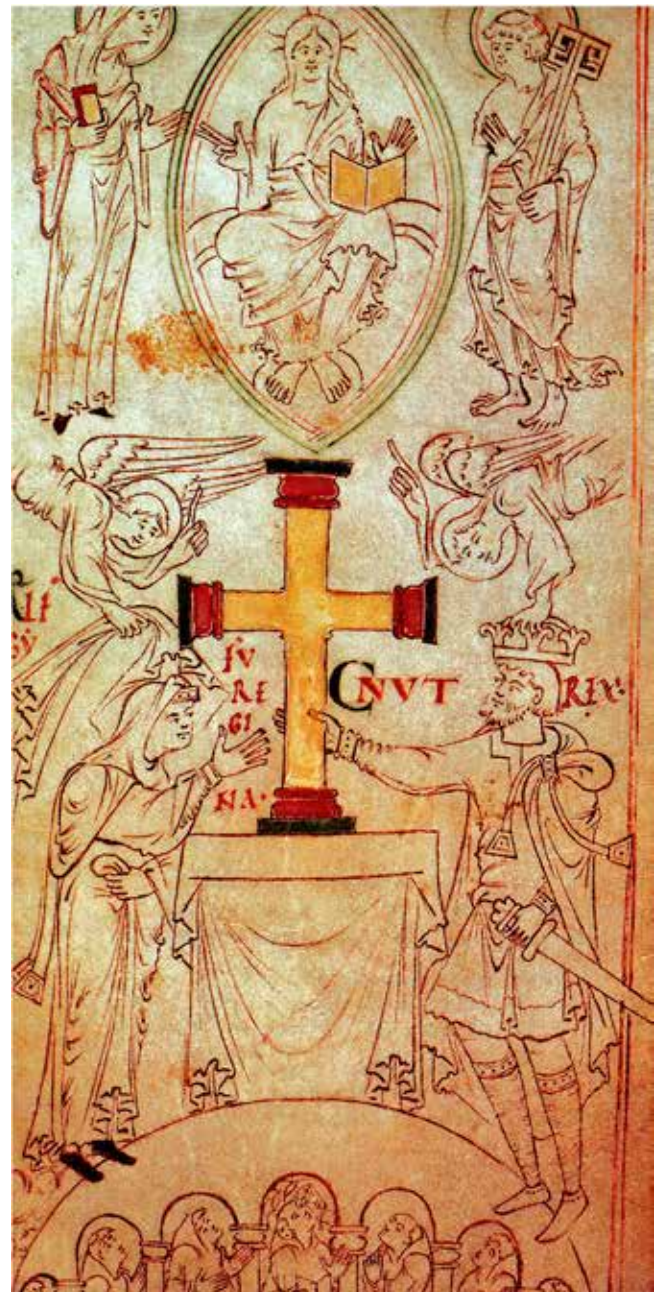 FV
RE
GI
NA·
CNVT REX: